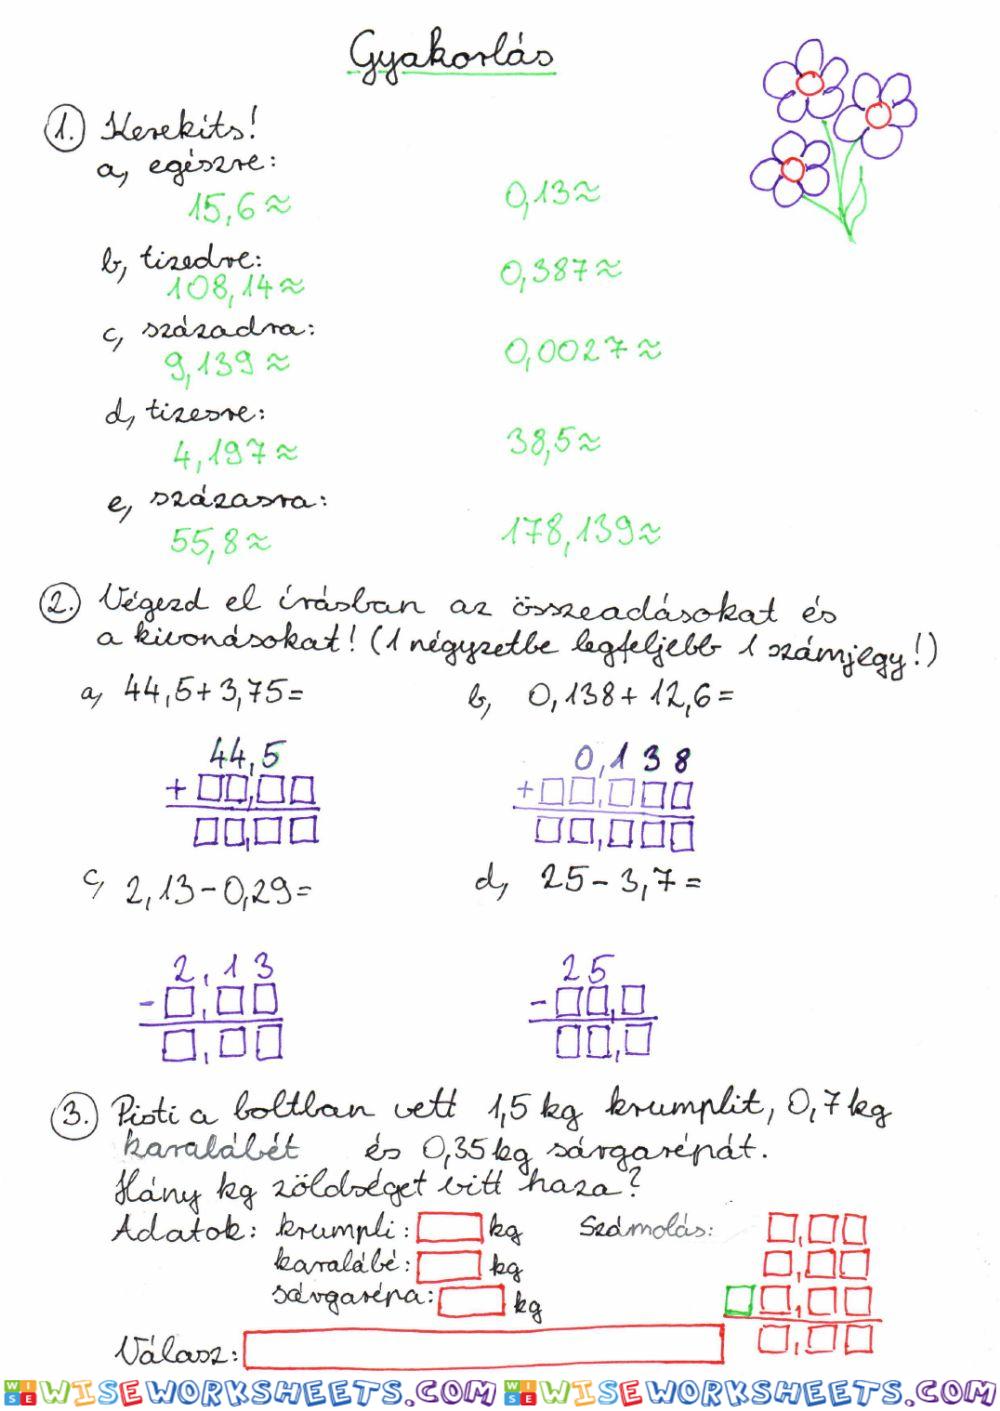 Gyakorlás
1. Kerekíts!
a, egészre:
15,6≈ 0,13≈
b, tizedre:
108,14≈ 0,387≈
c, századra:
9,139≈ 0,0027≈
d, tizesre:
4,197≈ 38,5≈
e, százasra:
55,8≈ 178,139≈
2. Végezd el írásban az összeadásokat és
a kivonásokat! (1 négyzetbe legfeljebb 1 számjegy!)
a, 44,5+3,75= b, 0,138+12,6=
44,5 0,138
+ , + ,
, ,
c, 2,13-0,29= d, 25-3,7=
2,13 25
- , - ,
, ,
3. Pisti a boltban vett 1,5 kg krumplit, 0,7 kg
karalábét és 0,35 kg sárgarépát.
Hány kg zöldséget vitt haza?
Adatok: krumpli: kg Számolás: ,
karalábé: kg ,
sárgarépa: kg ,
Válasz: ,
WISE WISEWORKSHEETS.COM WISE WISEWORKSHEETS.COM